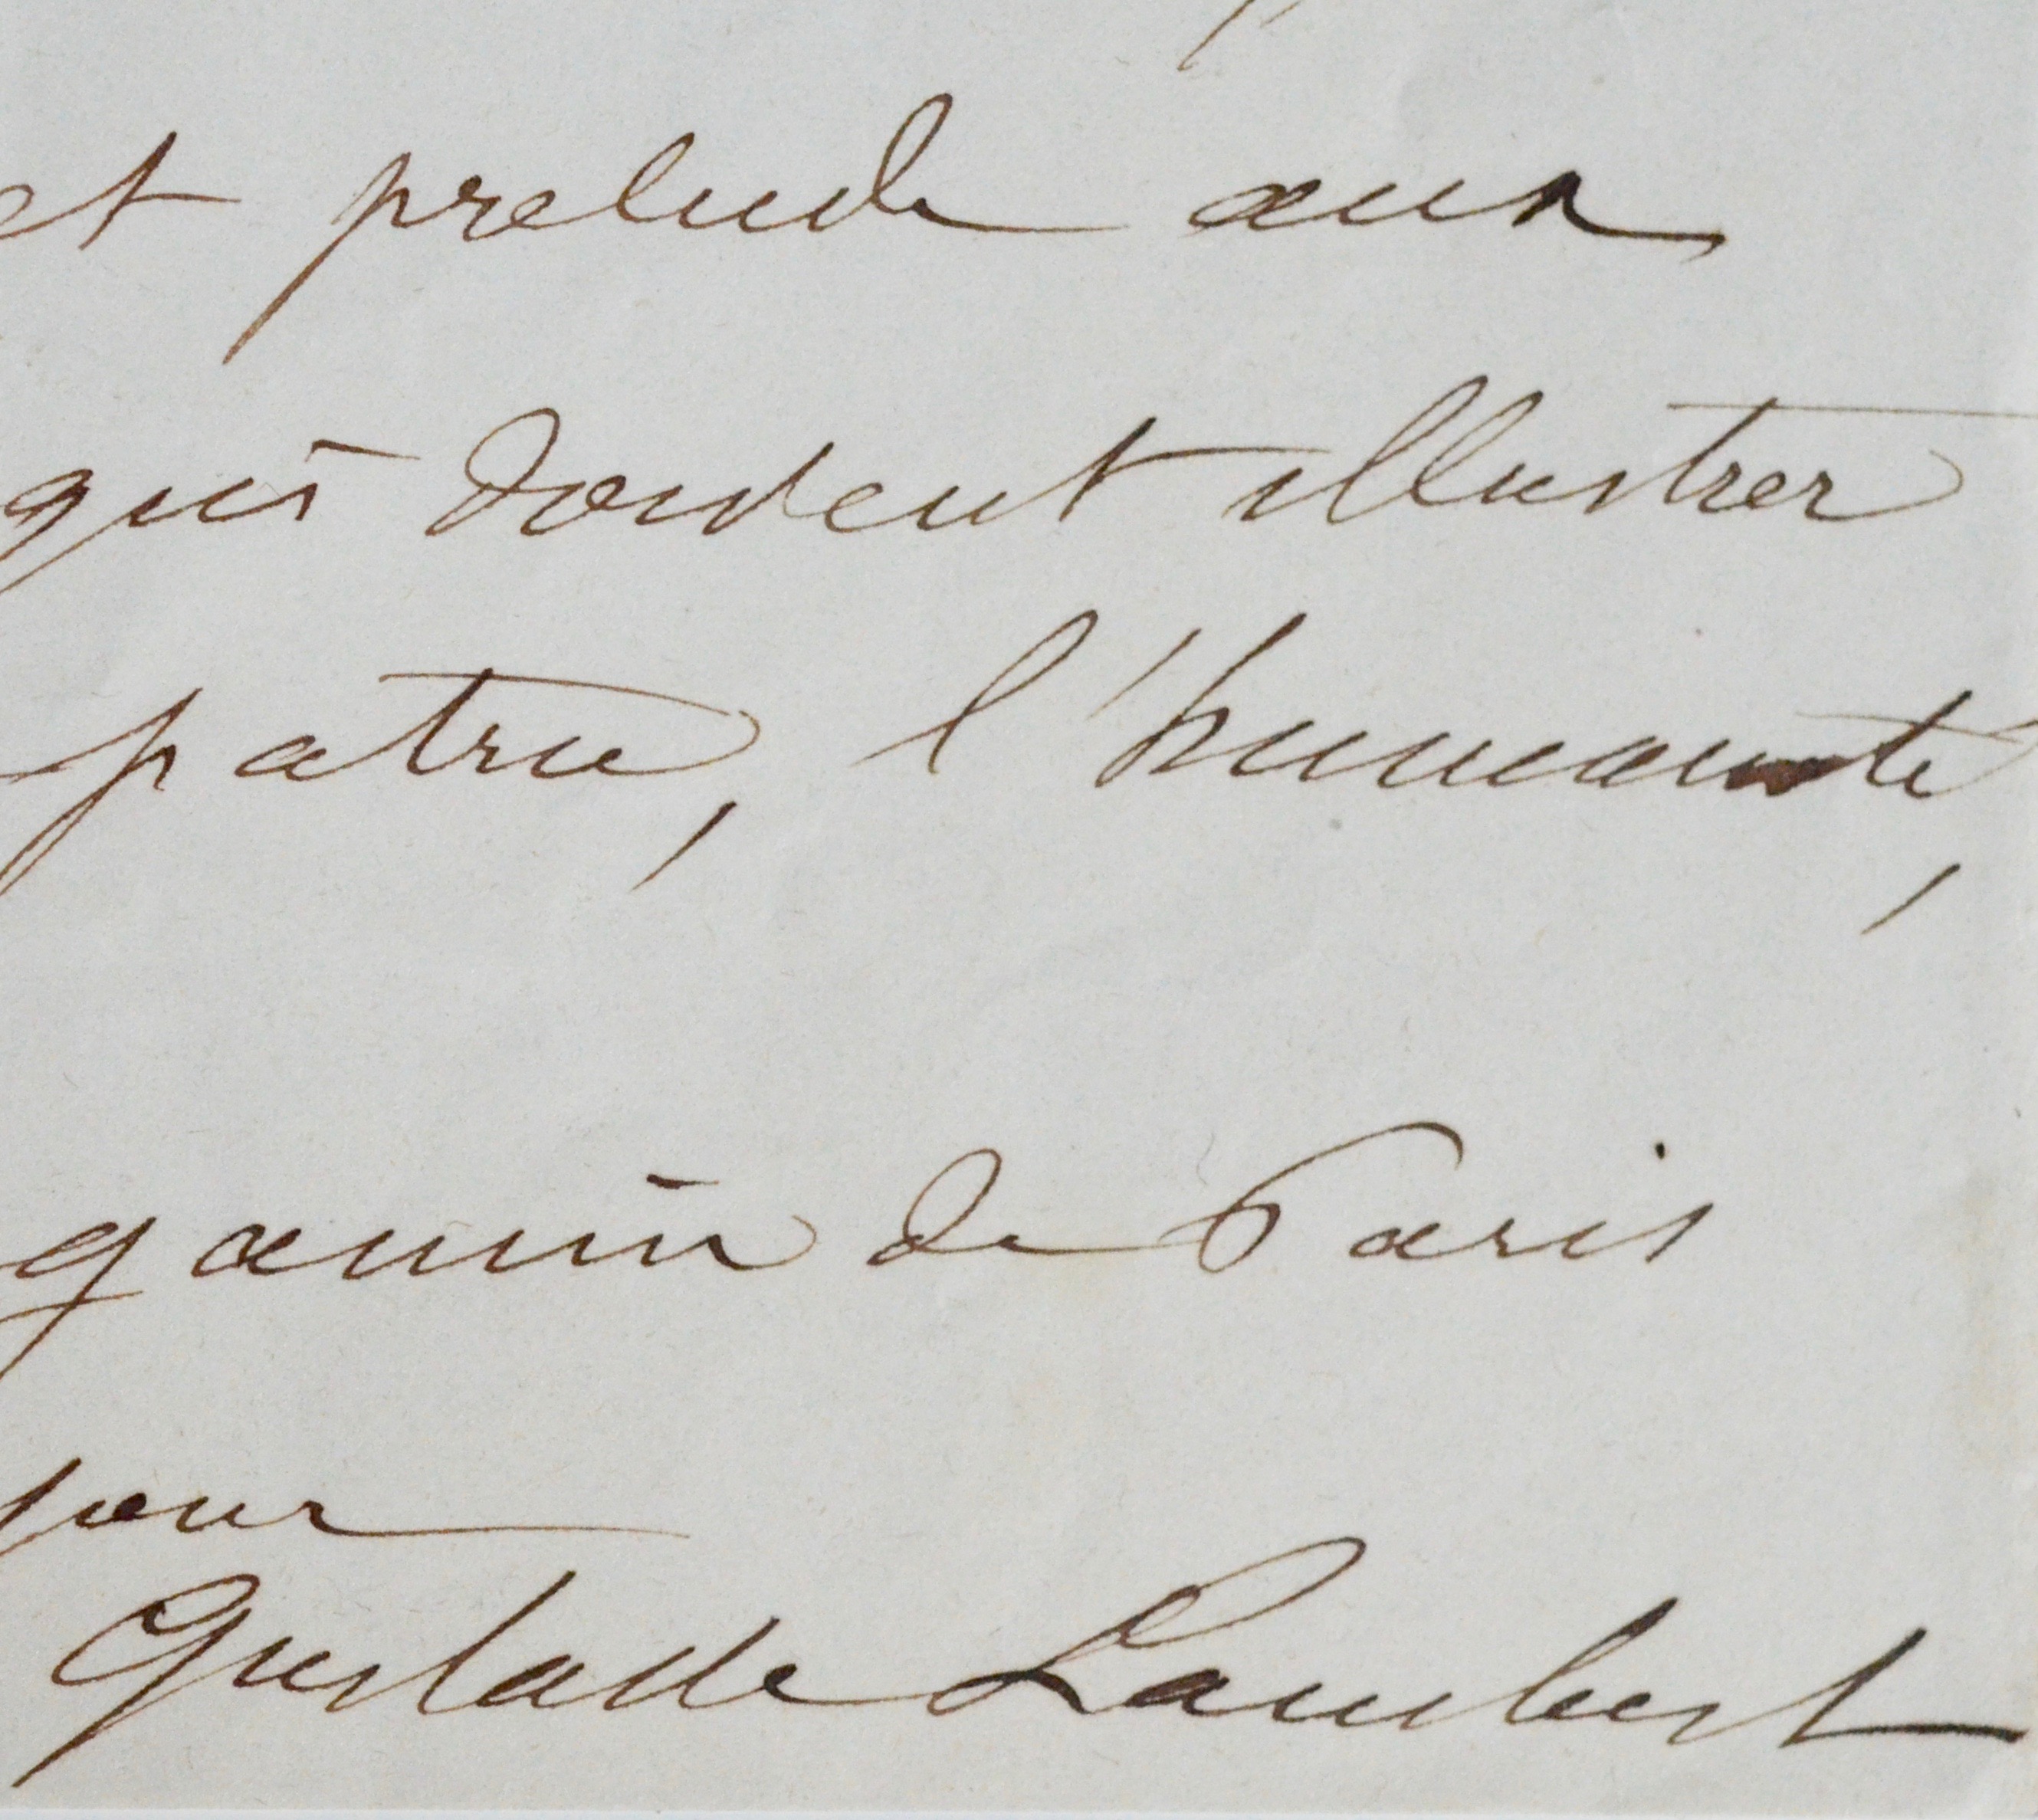 et prelude aux
qui doivent illustrer
patrie, l'humanité,
gamin de Paris
pour
Gustave Lambert